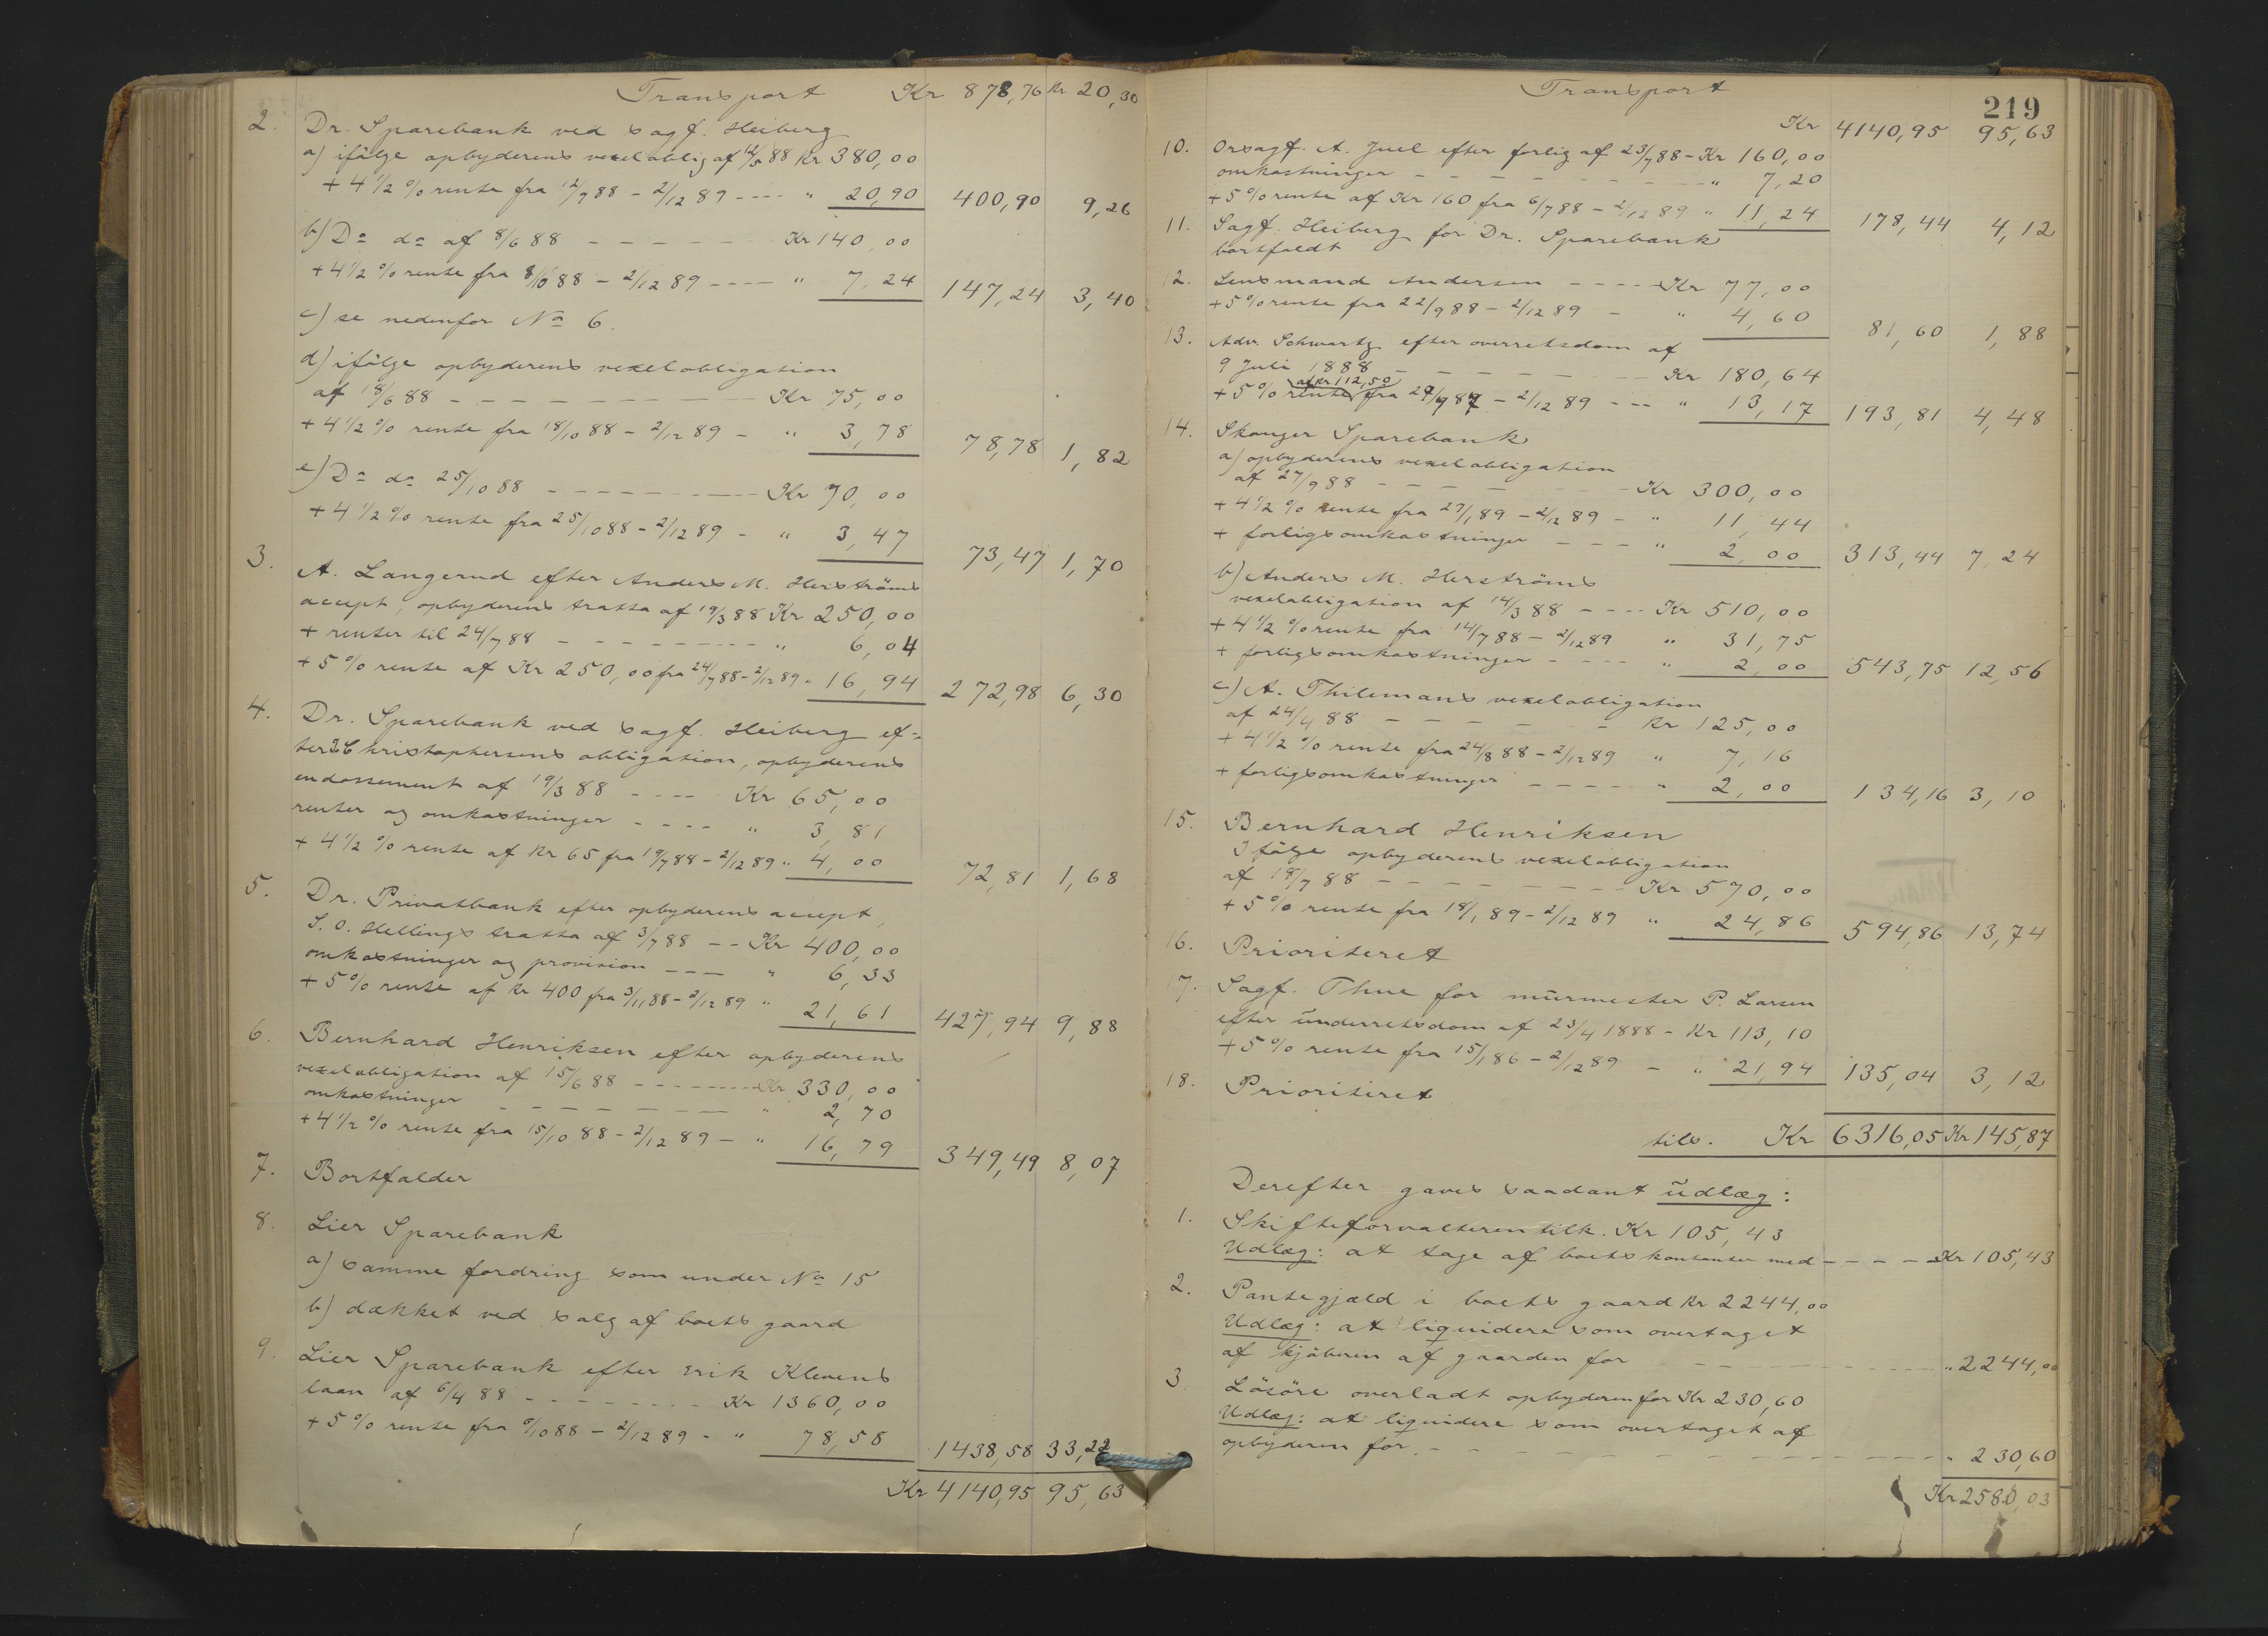 Transport Kr 878,76 Kr 20,30
2. Dr. Sparebank ved sagf. Heiberg
a) ifölge opbyderens vexelobligaf 12/5 88 Kr 380,00
+ 4 1/2 % rente fra 12/9 88 - 2/12 89 ---- " 20,90 400,90 9,26
b) Do do af 8/6 88 - - - - - Kr 140,00
+ 4 1/2 % rente fra 8/10 88 - 2/12 89 ---- " 7,24 147,24 3,40
c) se nedenfor No 6.
d) ifölge opbyderens vexelobligation
af 18/6 88 - - - - - - - - - Kr 75,00
+ 4 1/2 % rente fra 18/10 88 - 2/12 89 - " 3,78 78,78 1,82
e) Do do 25/10 88 - - - - - - - Kr 70,00
+ 4 1/2 % rente fra 25/10 88 - 2/12 89 - " 3,47 73,47 1,70
3. A. Langerud efter Anders M. Herströms
accept, opbyderens tratta af 19/3 88 Kr 250,00
+ renter til 24/7 88 - - - - - - - " 6,04
+ 5 % rente af Kr 250,00 fra 24/7 88 - 2/12 89 " 16,94 272,98 6,30
4. Dr. Sparebank ved sagf. Heiberg ef-
ter Christophersens obligation, opbyderens
endossement af 19/3 88 ---- Kr 65,00
renter og omkostninger - - - - " 3,81
+ 4 1/2 % rente af Kr 65 fra 19/7 88 - 2/12 89 " 4,00 72,81 1,68
5. Dr. Privatbank efter opbyderens accept,
S. O. Hellings tratta af 3/7 88 -- Kr 400,00
omkostninger og provision --- " 6,33
+ 5 % rente af Kr 400 fra 3/11 88 - 2/12 89 " 21,61 427,94 9,88
6. Bernhard Henriksen efter opbyderens
vexelobligation af 15/6 88 ------- Kr 330,00
omkostninger - - - - - - - " 2,70
+ 4 1/2 % rente fra 15/10 88 - 2/12 89 - " 16,79 349,49 8,07
7. Bortfalder
8. Lier Sparebank
a) samme fordring som under No 15
b) dækket ved salg af boets gaard
9. Lier Sparebank efter Erik Klevens
laan af 6/4 88 - - - - - - - Kr 1360,00
+ 5 % rente fra 6/10 88 - 2/12 89 - " 78,58 1438,58 33,22
Kr 4140,95 95,63
219
Transport
Kr 4140,95 95,63
10. Orsagf. A. Juel efter forlig af 23/7 88 - Kr 160,00
omkostninger - - - - - - - - " 7,20
+ 5 % rente af Kr 160 fra 6/7 88 - 2/12 89 " 11,24 178,44 4,12
11. Sagf. Heiberg for Dr. Sparebank
bortfaldt
12. Lensmand Andersen - - - - Kr 77,00
+ 5 % rente fra 22/9 88 - 2/12 89 - " 4,60 81,60 1,88
13. Adv. Schwartz efter overretsdom af
9 Juli 1888 - - - - - - - Kr 180,64
af Kr 112,50
+ 5 % rente fra 27/9 87 - 2/12 89 --- " 13,17 193,81 4,48
14. Skoger Sparebank
a) opbyderens vexelobligation
af 27/9 88 - - - - - - - Kr 300,00
+ 4 1/2 % rente fra 27/1 89 - 2/12 89 - " 11,44
+ forligsomkostninger - - - " 2,00 313,44 7,24
b) Anders M. Herströms
vexelobligation af 14/3 88 ---- Kr 510,00
+ 4 1/2 % rente fra 14/7 88 - 2/12 89 " 31,75
+ forligsomkostninger - - - - " 2,00 543,75 12,56
c) A. Thilemans vexelobligation
af 24/4 88 - - - - - - Kr 125,00
+ 4 1/2 % rente fra 24/8 88 - 2/12 89 " 7,16
+ forligsomkostninger - - - - - " 2,00 134,16 3,10
15. Bernhard Henriksen
Ifölge opbyderens vexelobligation
af 18/7 88 - - - - - - - - Kr 570,00
+ 5 % rente fra 18/1 89 - 2/12 89 " 24,86 594,86 13,74
16. Prioriteret
17. Sagf. Thue for murmester P. Larsen
efter underretsdom af 23/4 1888 - Kr 113,10
+ 5 % rente fra 15/1 86 - 2/12 89 - " 21,94 135,04 3,12
18. Prioriteret
tils. Kr 6316,05 Kr 145,87
Derefter gaves saadant udlæg:
1. Skifteforvalteren tilk. Kr 105,43
Udlæg: at tage af boets kontanter med - - - - Kr 105,43
2. Pantegjæld i boets gaard Kr 2244,00
Udlæg: at liqvidere som overtaget
af kjöberen af gaarden for - - - - - - - " 2244,00
3. Lösöre overladt opbyderen for Kr 230,60
Udlæg: at liqvidere som overtaget af
opbyderen for - - - - - - - - - - - " 230,60
Kr 2580,03